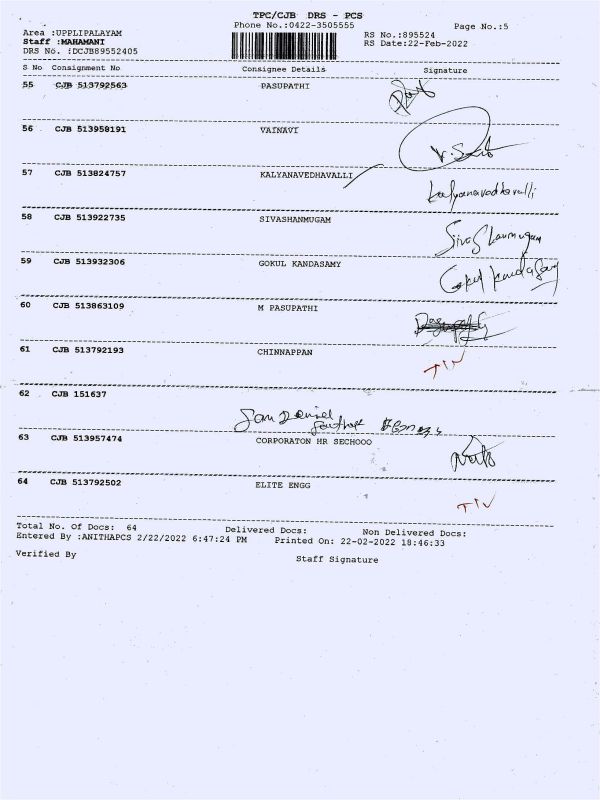 TPC/CJB DRS - PCS
Phone No.:0422-3505555
Page No.:5
Area :UPPLIPALAYAM
RS No.:895524
Staff :MAHAMANI
RS Date:22-Feb-2022
DRS No. :DCJB89552405
S No Consignment No Consignee Details Signature
55 CJB 513792563 PASUPATHI
56 CJB 513958191 VAINAVI
57 CJB 513824757 KALYANAVEDHAVALLI
kalyanavedhavalli
58 CJB 513922735 SIVASHANMUGAM
59 CJB 513932306 GOKUL KANDASAMY
Gokul kandasamy
60 CJB 513863109 M PASUPATHI
61 CJB 513792193 CHINNAPPAN
62 CJB 151637
Sam Daniel
63 CJB 513957474 CORPORATON HR SECHOOO
64 CJB 513792502 ELITE ENGG
Total No. Of Docs: 64 Delivered Docs: Non Delivered Docs:
Entered By :ANITHAPCS 2/22/2022 6:47:24 PM Printed On: 22-02-2022 18:46:33
Verified By Staff Signature